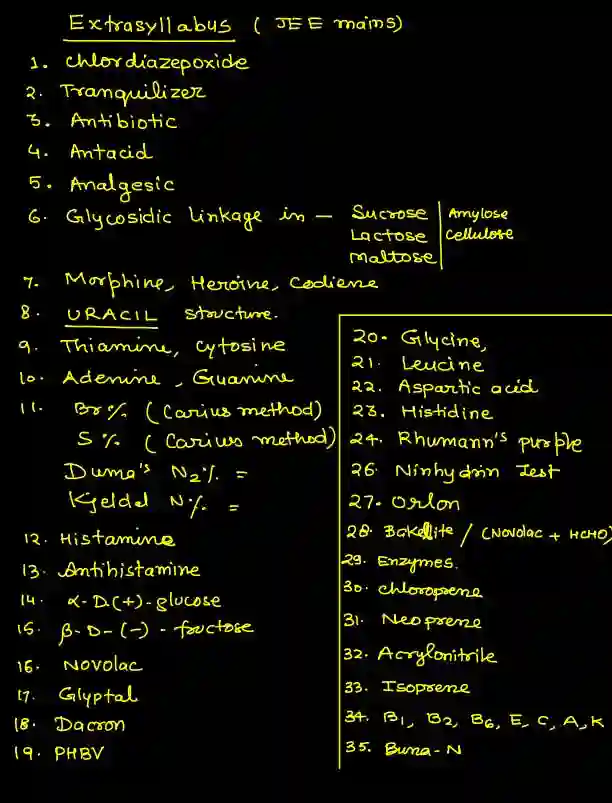 Extrasyllabus ( JEE mains)
1. Chlordiazepoxide
2. Tranquilizer
3. Antibiotic
4. Antacid
5. Analgesic
6. Glycosidic linkage in — Sucrose | Amylose
Lactose | Cellulose
Maltose
7. Morphine, Heroine, Codiene
8. URACIL structure.
9. Thiamine, cytosine
10. Adenine, Guanine
11. Br % (Carius method)
S % (Carius method)
Duma's N2 % =
Kjeldal N % =
12. Histamine
13. Antihistamine
14. α-D(+)-glucose
15. β-D-(-)-fructose
16. Novolac
17. Glyptal
18. Dacron
19. PHBV
20. Glycine,
21. Leucine
22. Aspartic acid
23. Histidine
24. Rhumann's purple
26. Ninhydrin Test
27. Orlon
28. Bakelite / (Novolac + HCHO)
29. Enzymes.
30. chloroprene
31. Neoprene
32. Acrylonitrile
33. Isoprene
34. B1, B2, B6, E, C, A, K
35. Buna-N